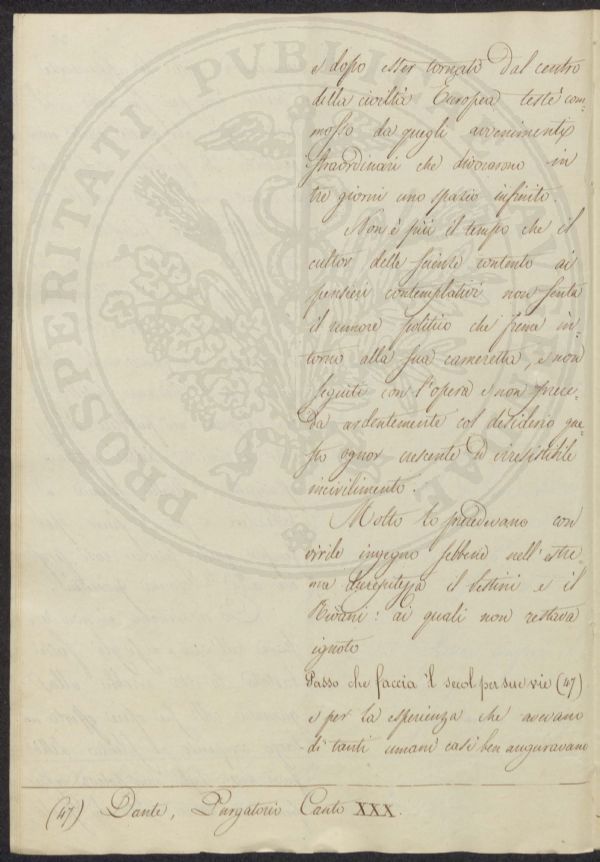 e dopo esser tornati dal centro
della civiltà Europea testè com=
mosso da quegli avvenimenti
straordinari che divorarono in
tre giorni uno spazio infinito.
Non è più il tempo che il
cultor delle scienze contento ai
pensieri contemplativi non senta
il rumore politico che freme in=
torno alla sua cameretta, e non
seguiti con l'opera e non prece=
da ardentemente col desiderio que
sto ognor crescente ed irresistibile
incivilimento.
Molto lo precedevano con
virile ingegno sebbene nell'estre=
ma decrepitezza il Sestini e il
: ai quali non restava
ignoto
Passo che faccia 'l secol per sue vie (47)
e per la esperienza che avevano
di tanti umani casi ben auguravano
(47) Dante, Purgatorio Canto XXX.
PROSPERITATI PVBLICAE